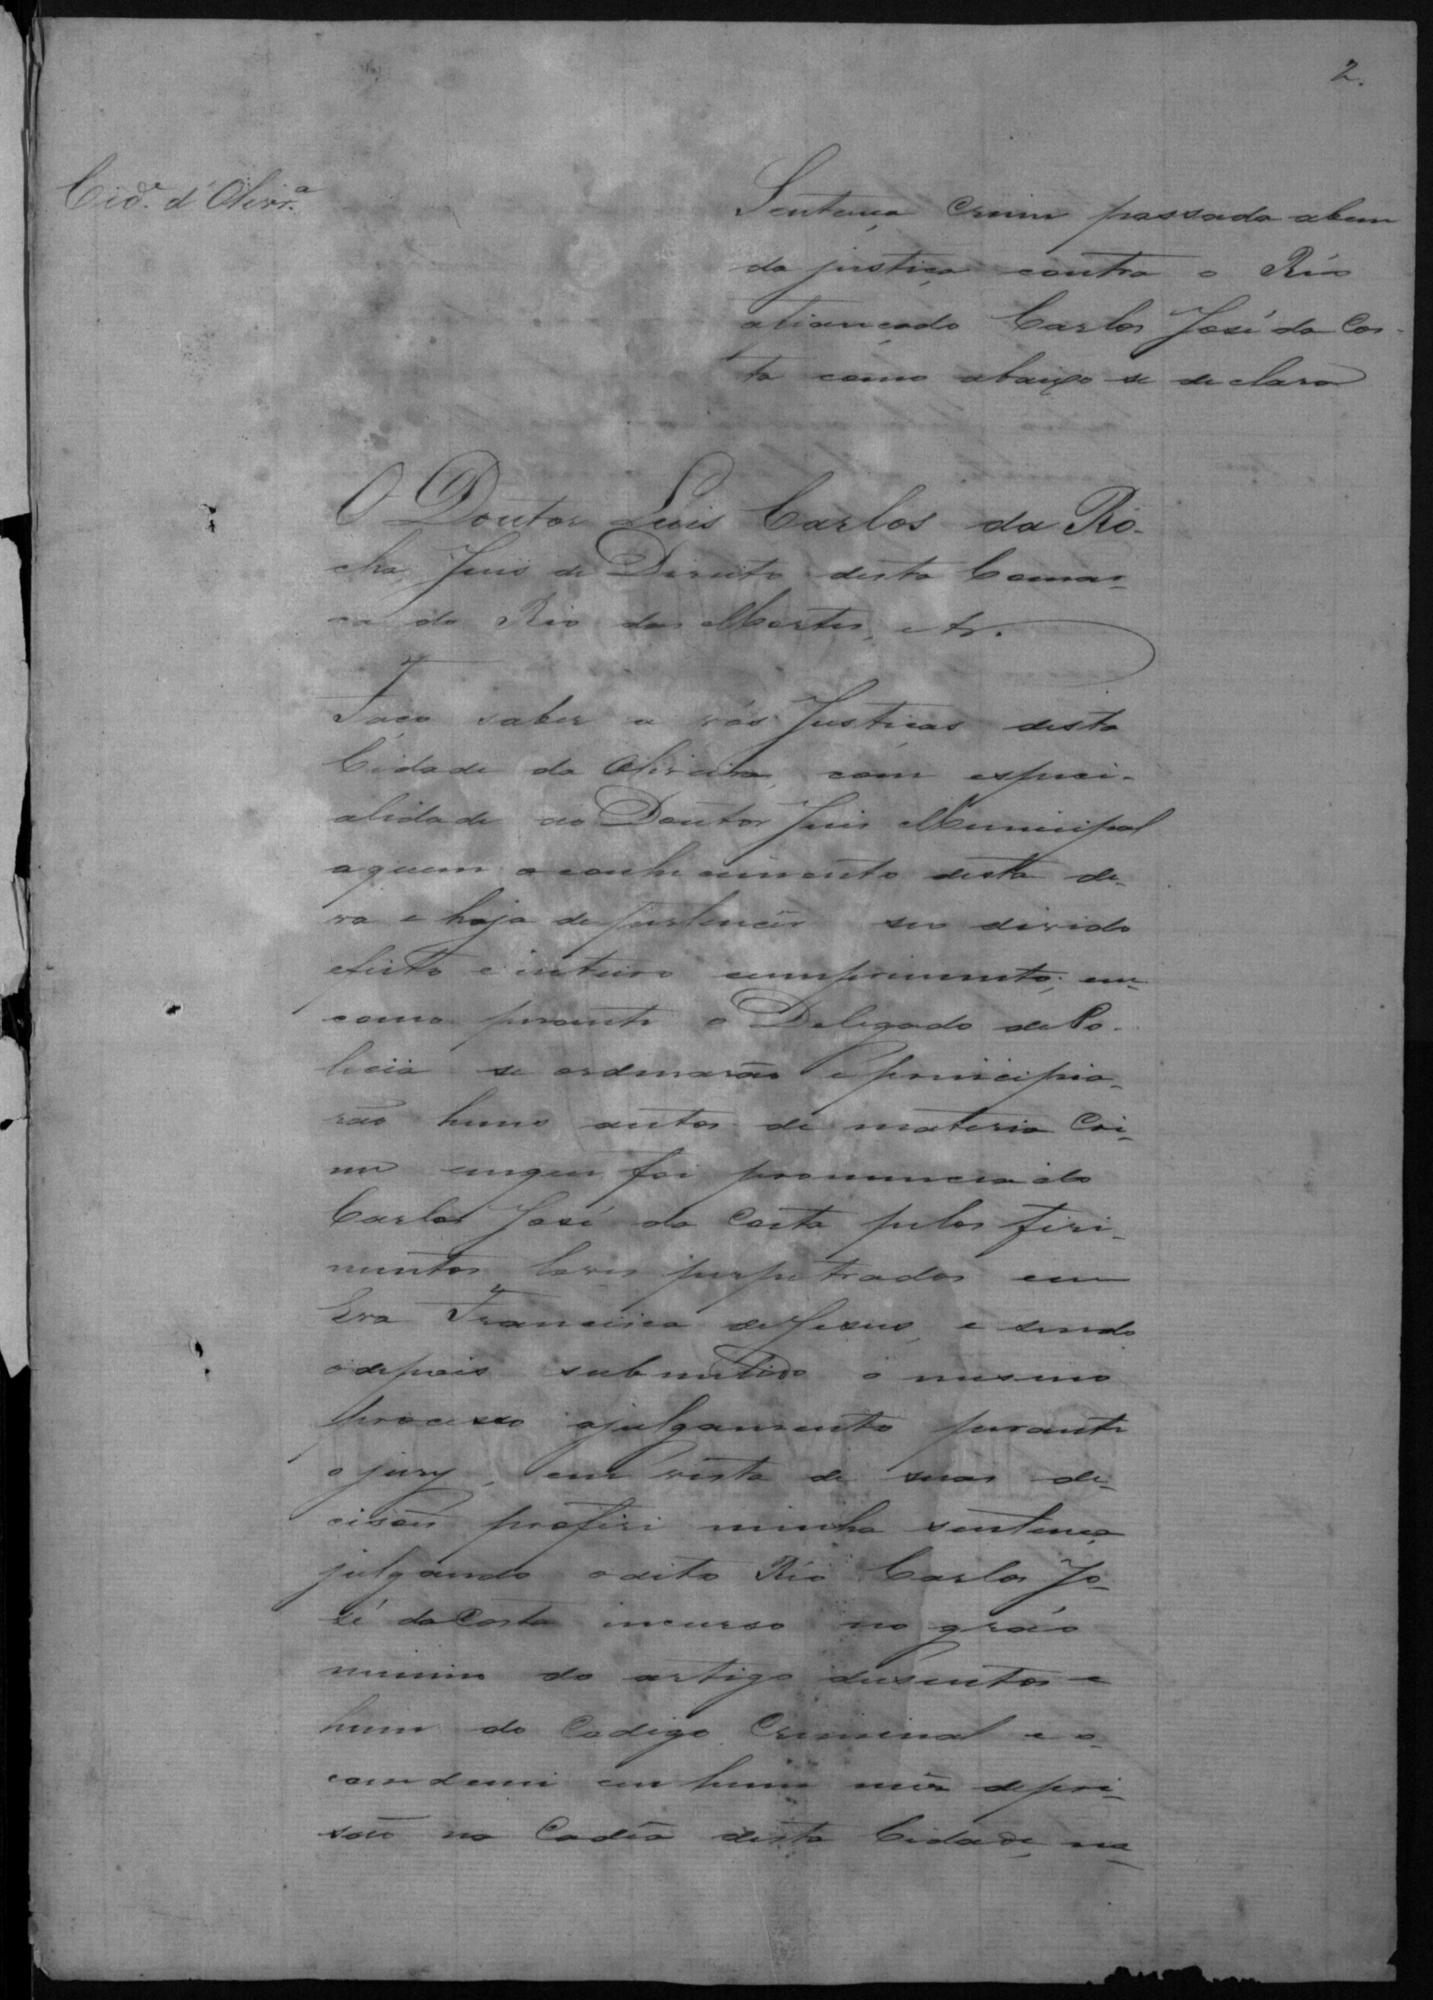 2.
Cid.e d'Olivr.a
Sentença Crime passada abem
da justiça contra o Réo
afiançado Carlos José da Cos-
ta como abaixo se declara
O Doutor Luis Carlos da Ro-
cha, Juis de Direito desta Comar-
ca do Rio das Mortes, etc.
Faço saber a vós Justiças desta
Cidade da Oliveira, com especi-
alidade ao Doutor Juis Municipal
aquem o conhecimento desta de-
va e haja de pertencêr seo divido
efeito e inteiro cumprimento; em
como perante o Delegado de Po-
licia se ordenarão e principia-
rão huns autos de materia Cri-
me emque foi pronunciado
Carlos José da Costa pelos firi-
mentos leves perpetrados em
Eva Francisca de Jesus, e sendo
odepois submetido o mesmo
processo ajulgamento perante
o jury, em vista de suas de-
cisões proferi minha sentença
julgando odito Réo Carlos Jo-
sé da Costa incurso no gráo
minimo do artigo dusentos e
hum do Codigo Criminal e o
condemnei em hum mês depri-
são na Cadêa desta Cidade, na